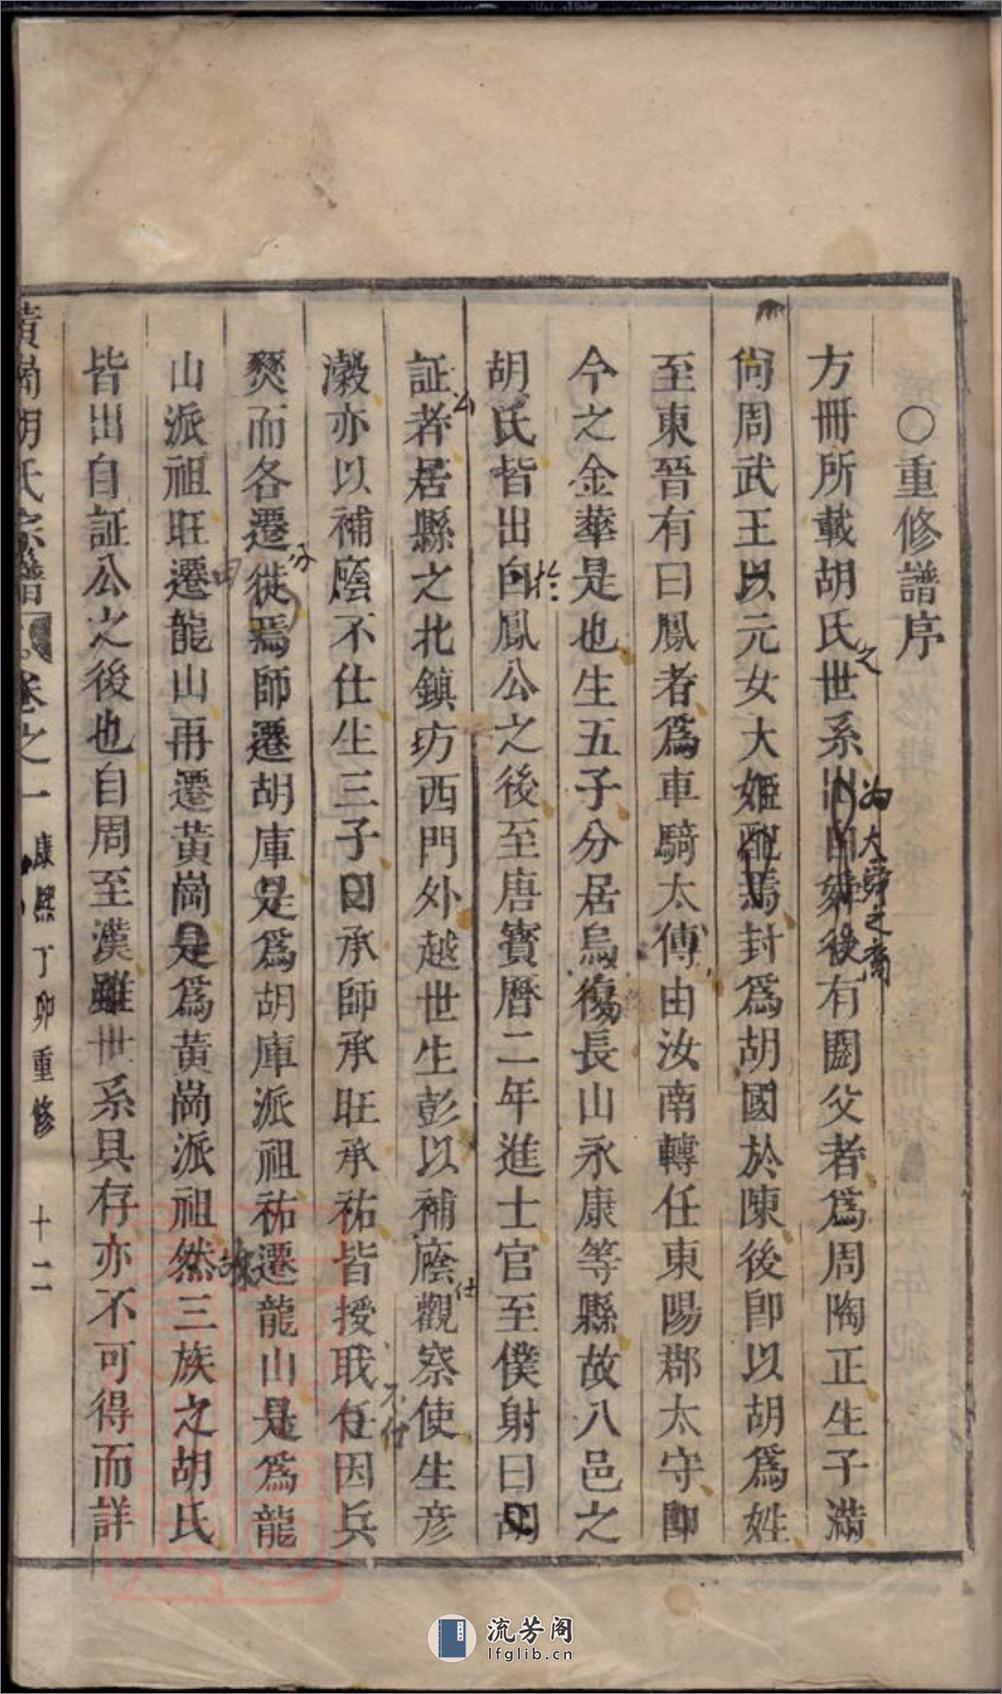 ○重修譜序
方冊所載胡氏世系出自舜後有閼父者爲周陶正生子滿
之
為大舜之裔
尙周武王以元女大姬配焉封爲胡國於陳後卽以胡爲姓
至東晉有曰鳳者爲車騎太傅由汝南轉任東陽郡太守卽
今之金華是也生五子分居烏傷長山永康等縣故八邑之
胡氏皆出自鳳公之後至唐寶曆二年進士官至僕射曰胡
於
証者居縣之北鎮坊西門外越世生彭以補廕觀察使生彦
公
仕
瀫亦以補廕不仕生三子曰承師承旺承祐皆授職任因兵
不仕
燹而各遷徙焉師遷胡庫是爲胡庫派祖祐遷龍山是爲龍
分
山派祖旺遷龍山再遷黃崗是爲黃崗派祖然三族之胡氏
皆出自証公之後也自周至漢雖世系具存亦不可得而詳
黃崗胡氏宗譜 卷之一 康熙丁卯重修 十二
流芳阁
lfglib.cn